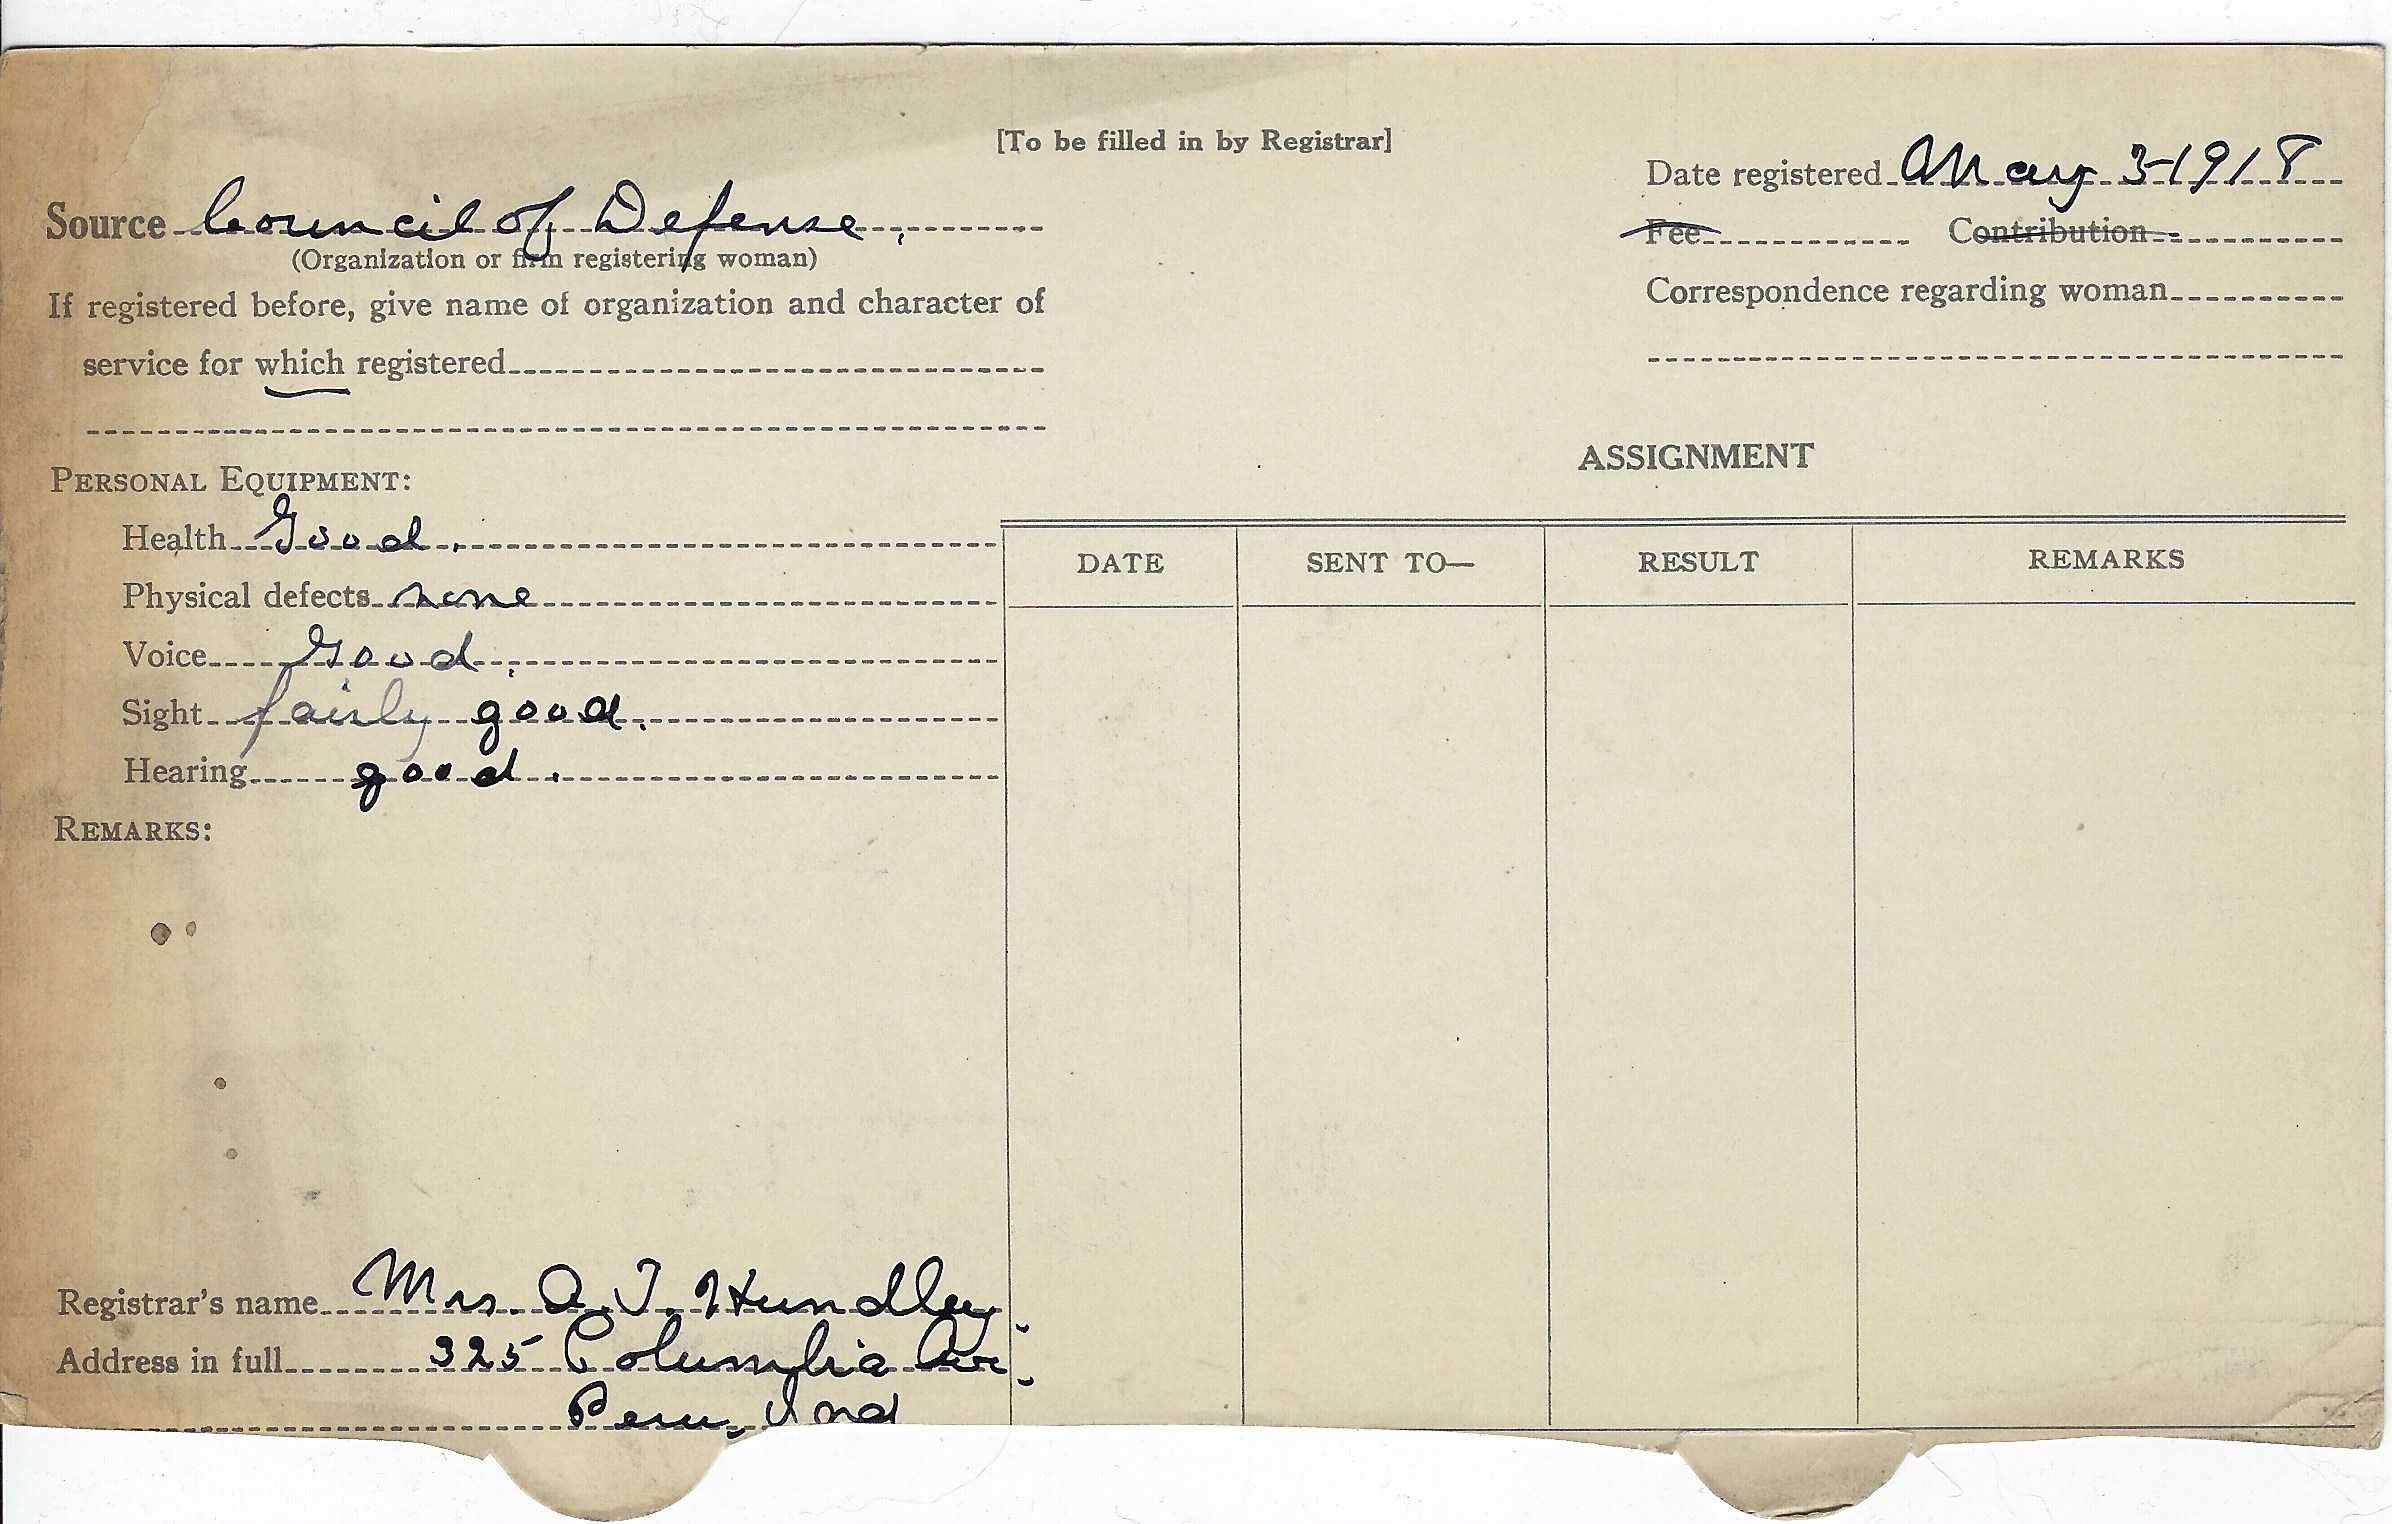 [To be filled in by Registrar]
Date registered May 3-1918
Source Council of Defense.
Fee Contribution
(Organization or firm registering woman)
If registered before, give name of organization and character of
Correspondence regarding woman
service for which registered
ASSIGNMENT
PERSONAL EQUIPMENT:
Health Good.
DATE SENT TO— RESULT REMARKS
Physical defects none
Voice Good.
Sight fairly good.
Hearing good.
REMARKS:
Registrar's name Mrs. A. T. Hundley.
Address in full 325 Columbia Ave.
Peru, Ind